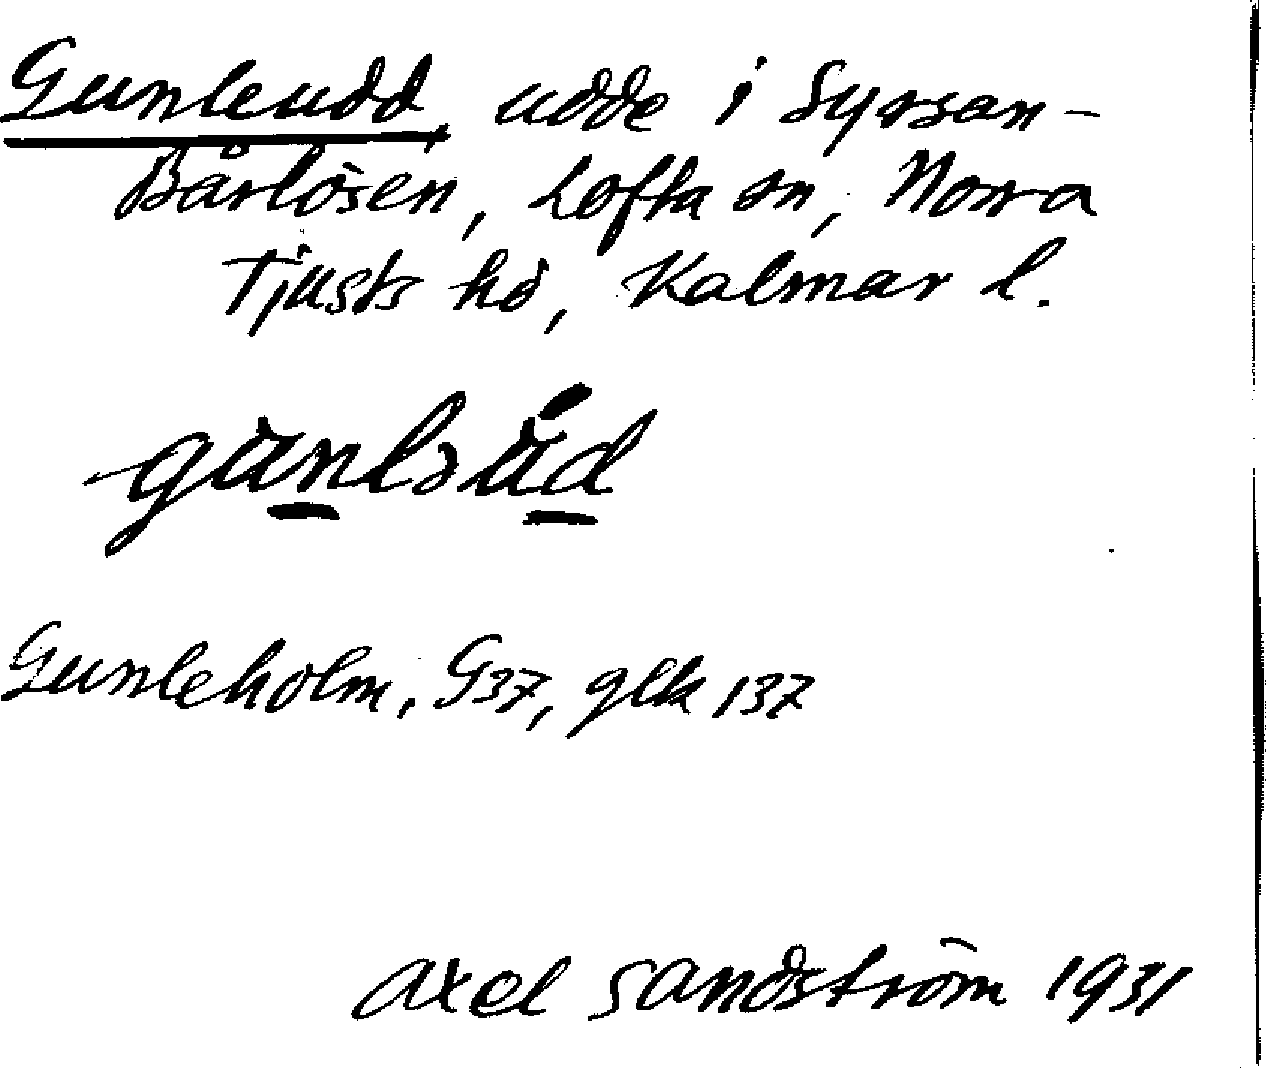 Gunleudd, udde i Syrsan-
Bårlösen, Lofta sn, Norra
Tjusts hd, Kalmar l.
gùnləúd
Gunleholm, G37, glk 137
Axel Sandström 1931